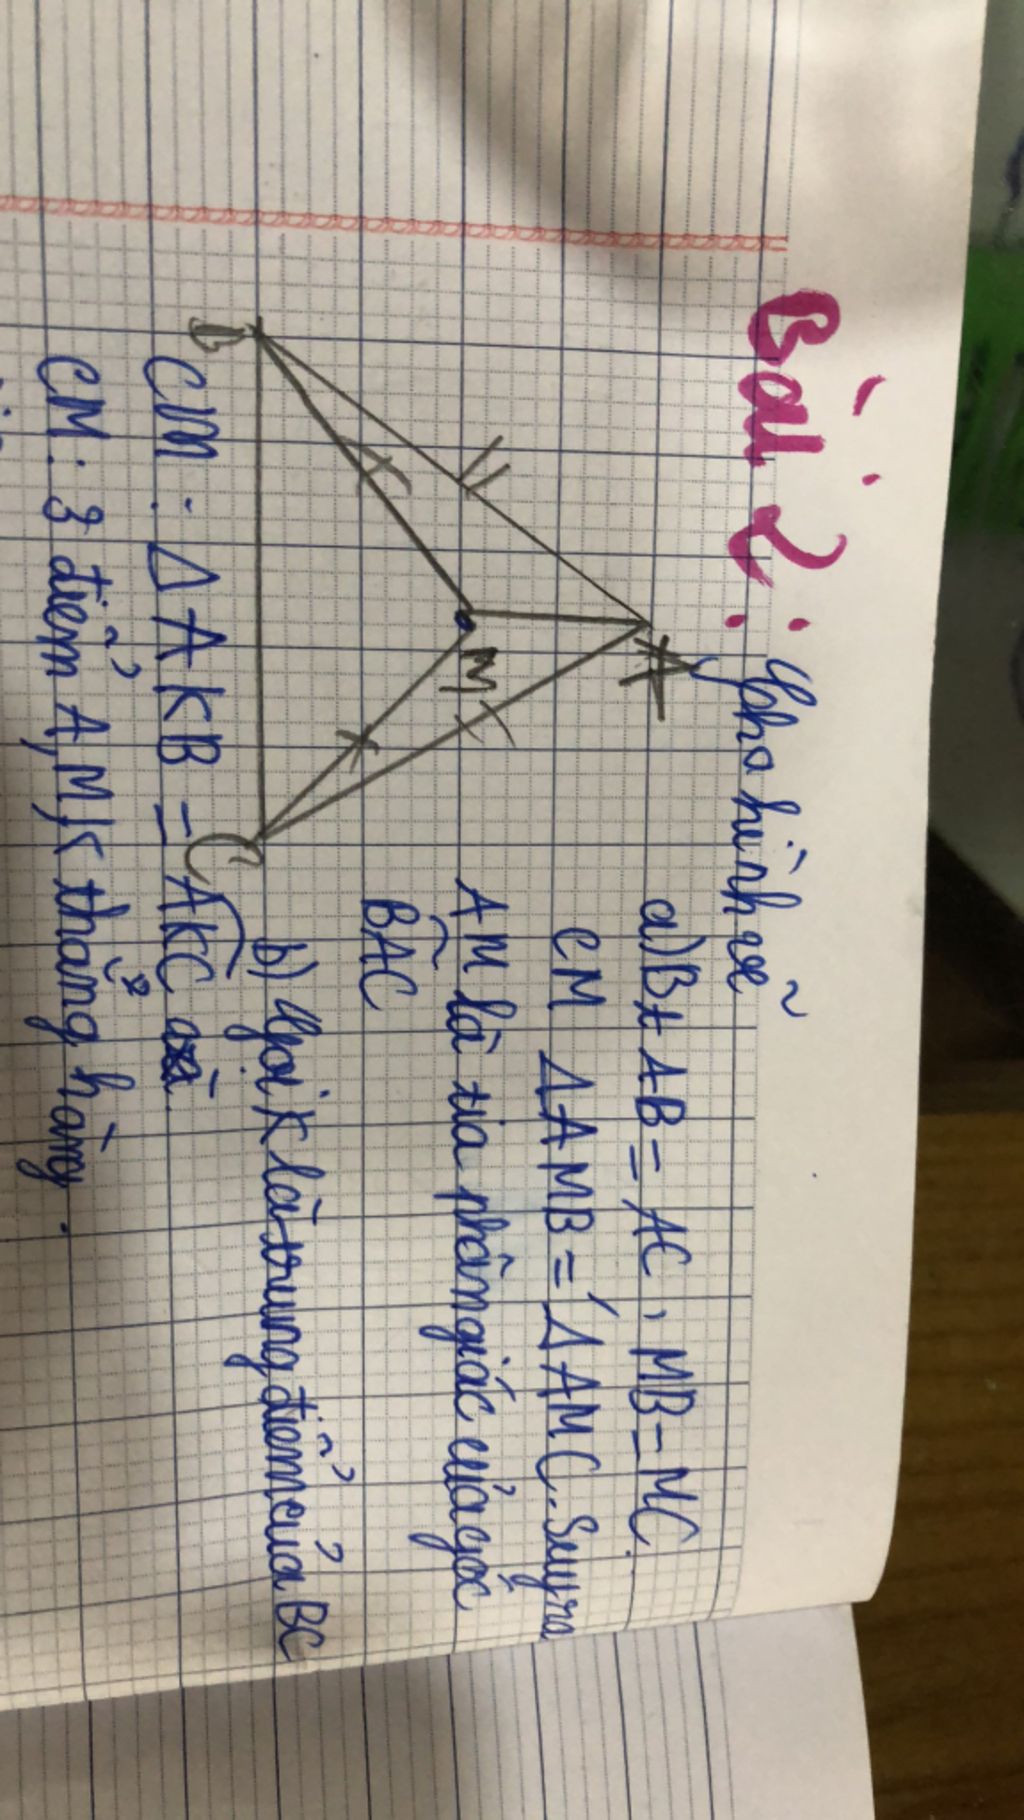 Bài 2: Cho hình vẽ
A
a) Bt AB = AC, MB = MC.
CM ΔAMB = ΔAMC. Suy ra
M
AM là tia phân giác của góc
BAC
B
C
b) Gọi K là trung điểm của BC
CM: ΔAKB = AKC và
CM: 3 điểm A, M, K thẳng hàng.